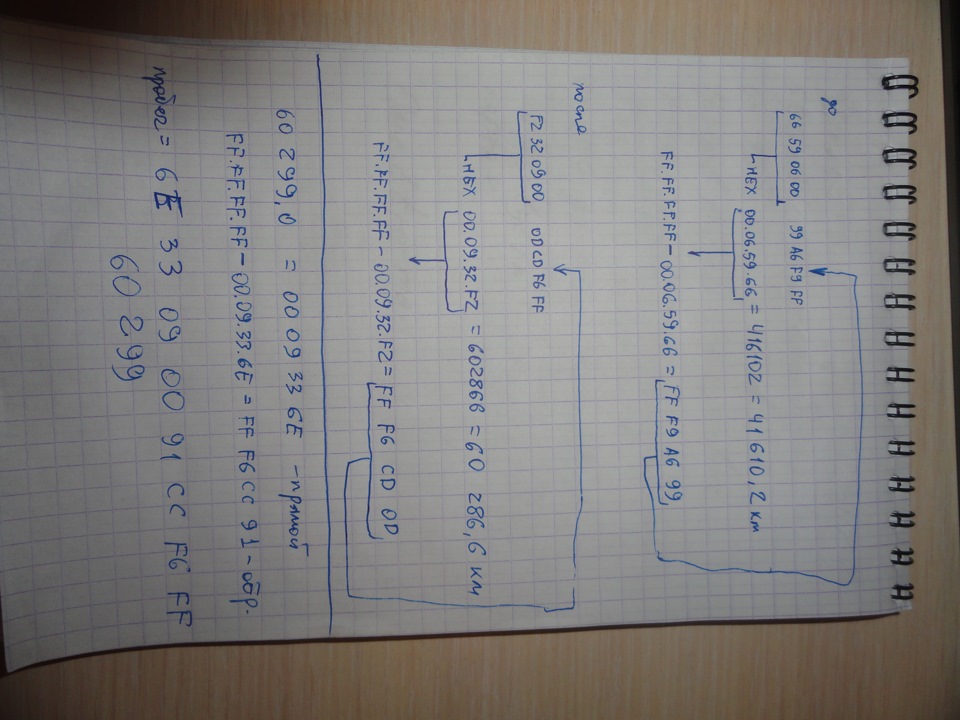 до
66 59 06 00 99 A6 F9 FF
HEX 00.06.59.66 = 416102 = 41 610,2 км
FF.FF.FF.FF - 00.06.59.66 = FF F9 A6 99
после
F2 32 09 00 0D CD F6 FF
HEX 00.09.32.F2 = 602866 = 60 286,6 км
FF.FF.FF.FF - 00.09.32.F2 = FF F6 CD 0D
60 299,0 = 00 09 33 6E - прямой
FF.FF.FF.FF - 00.09.33.6E = FF F6 CC 91 - обр.
пробег = 6E 33 09 00 91 CC F6 FF
60 299